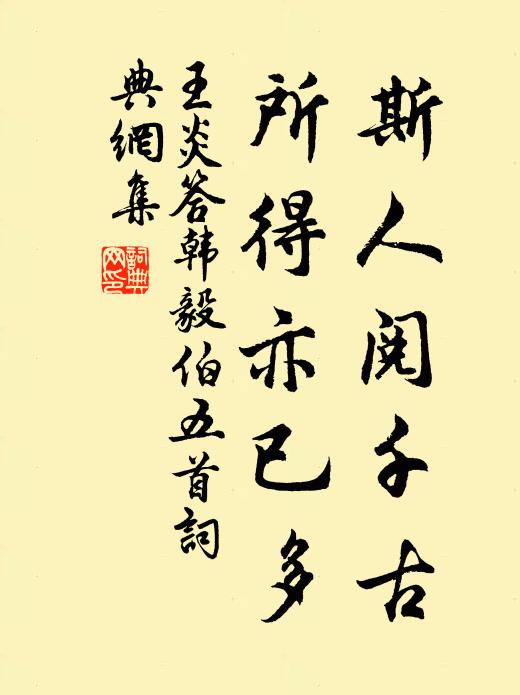 斯人閲千古
所得亦已多
王炎答韩毅伯五首詞
典網集
詞典
网印